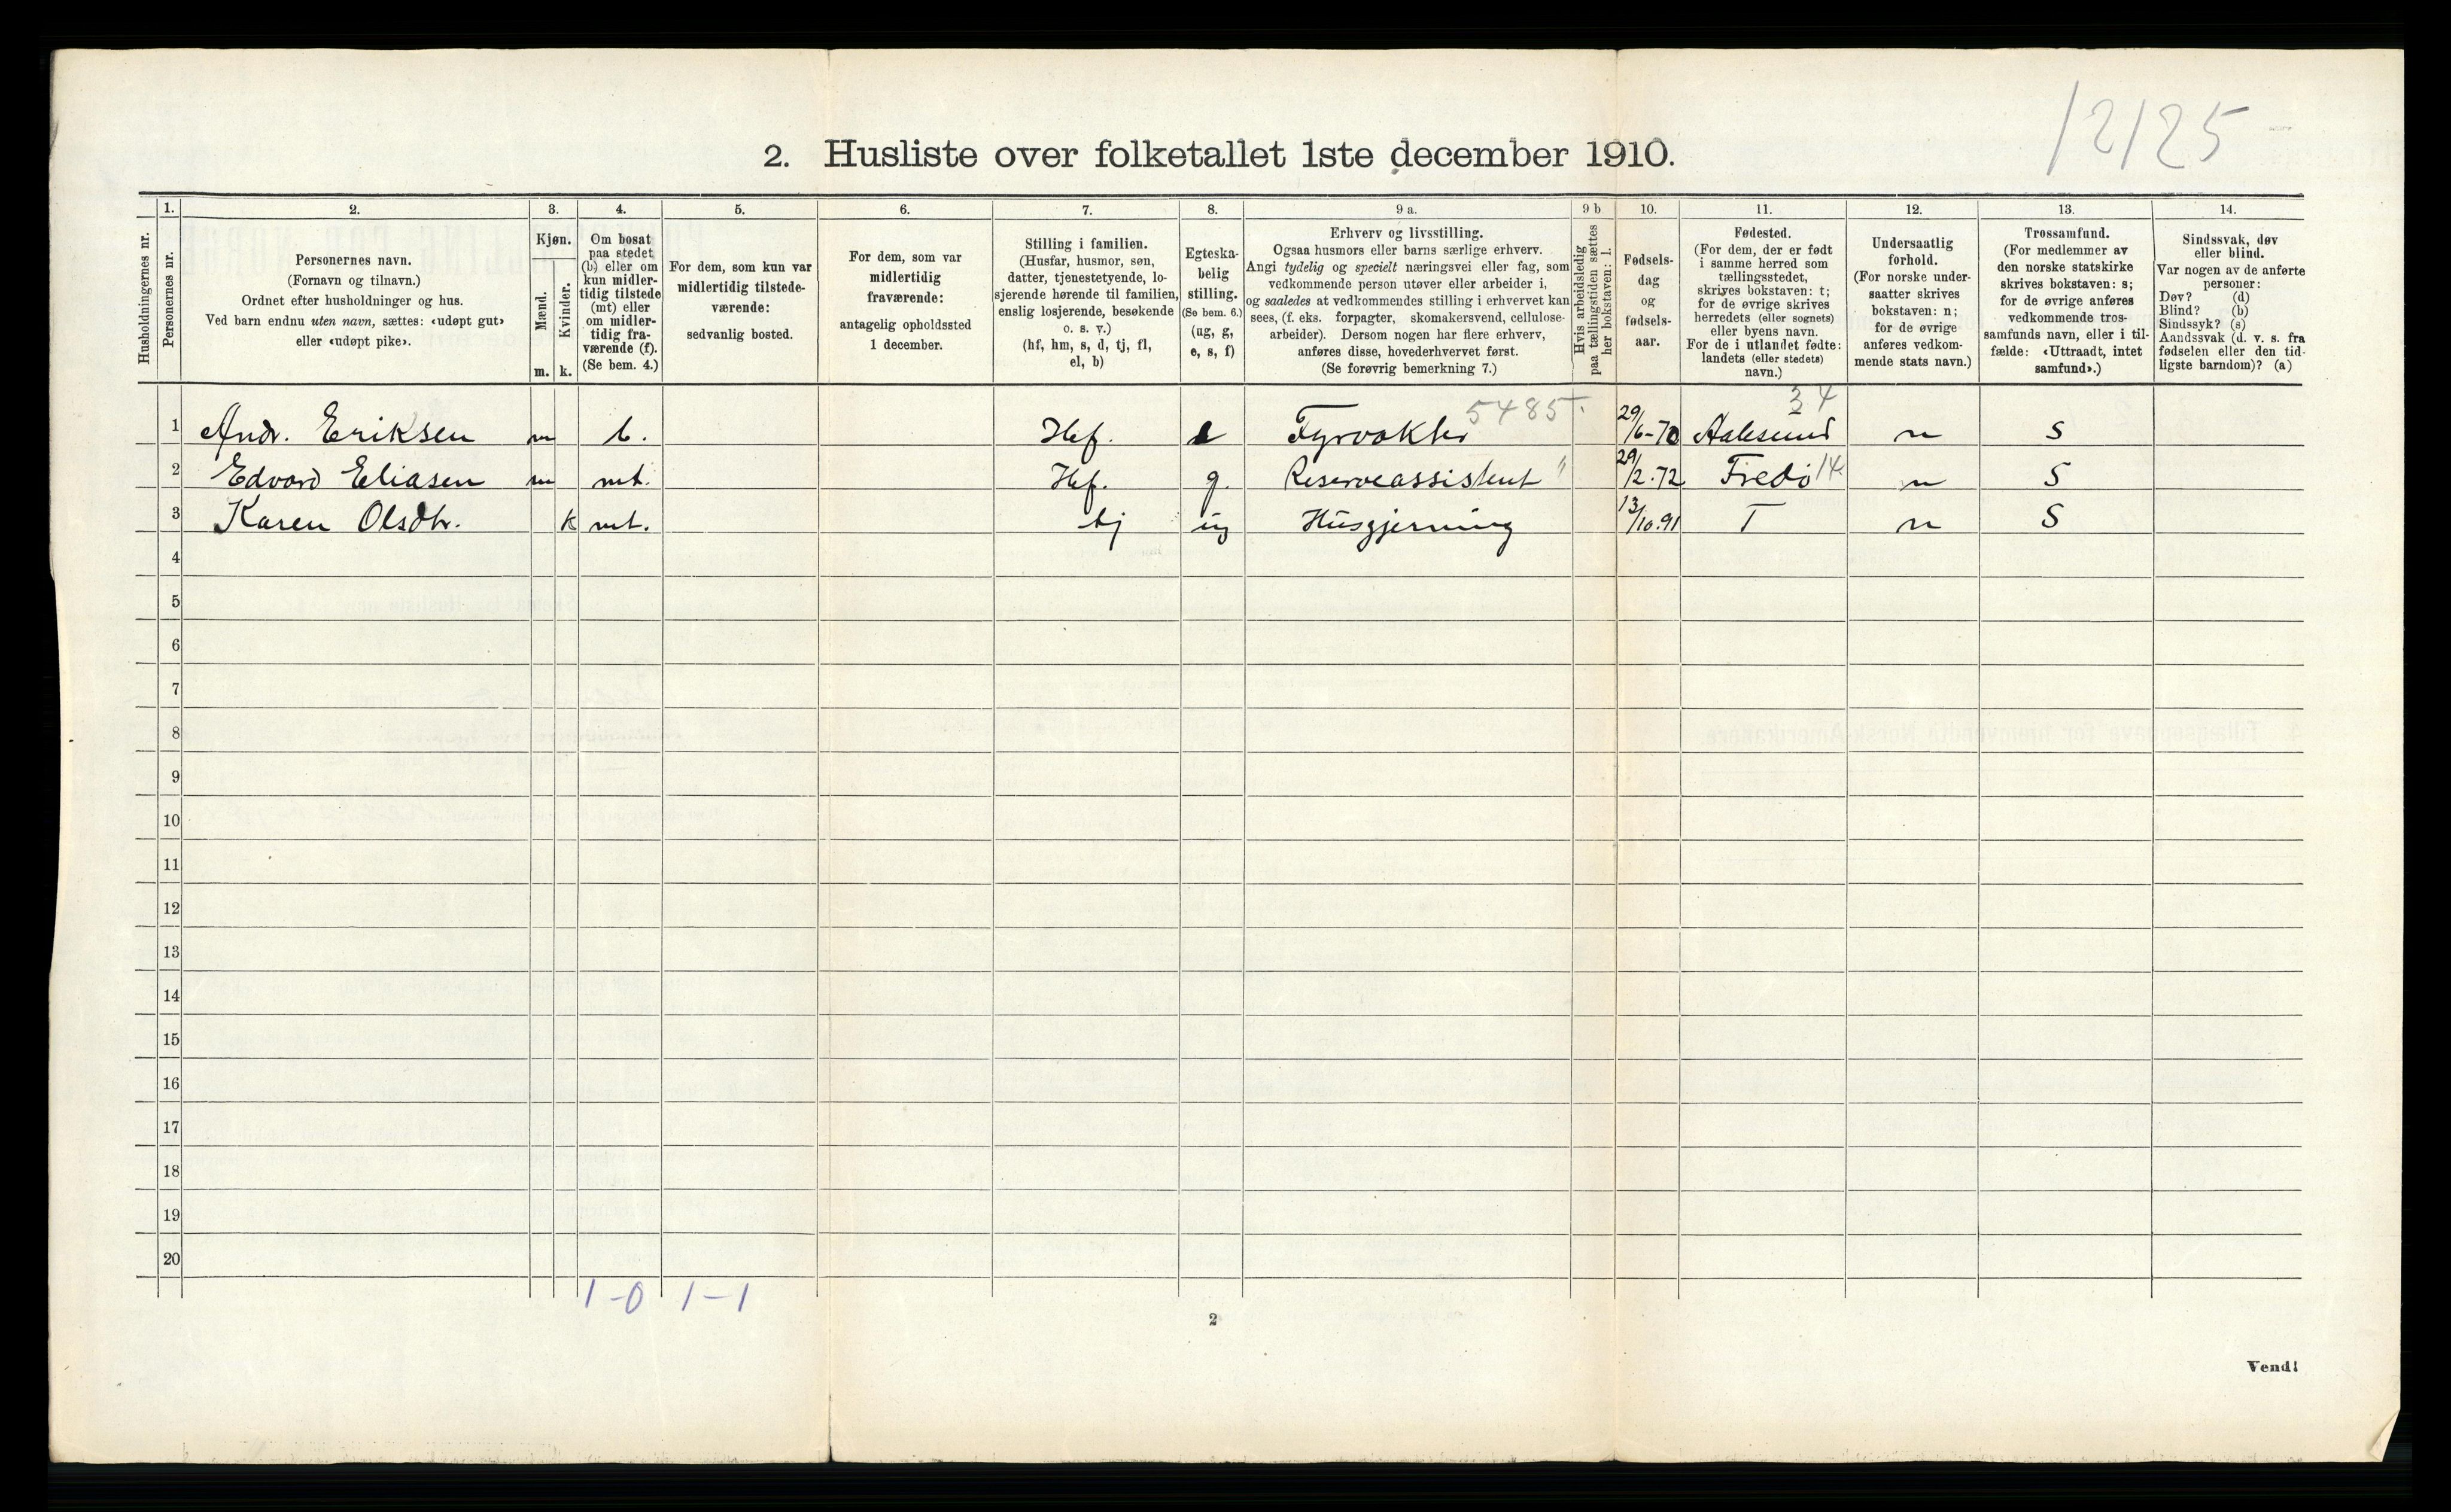 12125
2. Husliste over folketallet 1ste december 1910.
Husholdningernes nr.
1. Personernes nr.
2.
Personernes navn.
(Fornavn og tilnavn.)
Ordnet efter husholdninger og hus.
Ved barn endnu uten navn, sættes: «udøpt gut»
eller «udøpt pike».
3.
Kjøn.
Mænd.
Kvinder.
m. k.
4.
Om bosat
paa stedet
(b) eller om
kun midler-
tidig tilstede
(mt) eller
om midler-
tidig fra-
værende (f).
(Se bem. 4.)
5.
For dem, som kun var
midlertidig tilstede-
værende:
sedvanlig bosted.
6.
For dem, som var
midlertidig
fraværende:
antagelig opholdssted
1 december.
7.
Stilling i familien.
(Husfar, husmor, søn,
datter, tjenestetyende, lo-
sjerende hørende til familien,
enslig losjerende, besøkende
o. s. v.)
(hf, hm, s, d, tj, fl,
el, b)
8.
Egteska-
belig
stilling.
(Se bem. 6.)
(ug, g,
e, s, f)
9 a.
Erhverv og livsstilling.
Ogsaa husmors eller barns særlige erhverv.
Angi tydelig og specielt næringsvei eller fag, som
vedkommende person utøver eller arbeider i,
og saaledes at vedkommendes stilling i erhvervet kan
sees, (f. eks. forpagter, skomakersvend, cellulose-
arbeider). Dersom nogen har flere erhverv,
anføres disse, hovederhvervet først.
(Se forøvrig bemerkning 7.)
9 b
Hvis arbeidsledig
paa tællingstiden sættes
her bokstaven: l.
10.
Fødsels-
dag
og
fødsels-
aar.
11.
Fødested.
(For dem, der er født
i samme herred som
tællingsstedet,
skrives bokstaven: t;
for de øvrige skrives
herredets (eller sognets)
eller byens navn.
For de i utlandet fødte:
landets (eller stedets)
navn.)
12.
Undersaatlig
forhold.
(For norske under-
saatter skrives
bokstaven: n;
for de øvrige
anføres vedkom-
mende stats navn.)
13.
Trossamfund.
(For medlemmer av
den norske statskirke
skrives bokstaven: s;
for de øvrige anføres
vedkommende tros-
samfunds navn, eller i til-
fælde: «Uttraadt, intet
samfund».)
14.
Sindssvak, døv
eller blind.
Var nogen av de anførte
personer:
Døv? (d)
Blind? (b)
Sindssyk? (s)
Aandssvak (d. v. s. fra
fødselen eller den tid-
ligste barndom)? (a)
5485 34
1 Andr. Eriksen m b. Hf. e Fyrvokter 29/6-70 Aalesund n S
2 Edvard Eliasen m mt. Hf. g. Reserveassistent " 29/2.72 Fredö 14 n S
3 Karen Olsdtr. k mt. tj ug Husgjerning 13/10.91 T n S
4
5
6
7
8
9
10
11
12
13
14
15
16
17
18
19
20
1-0 1-1
2
Vend!